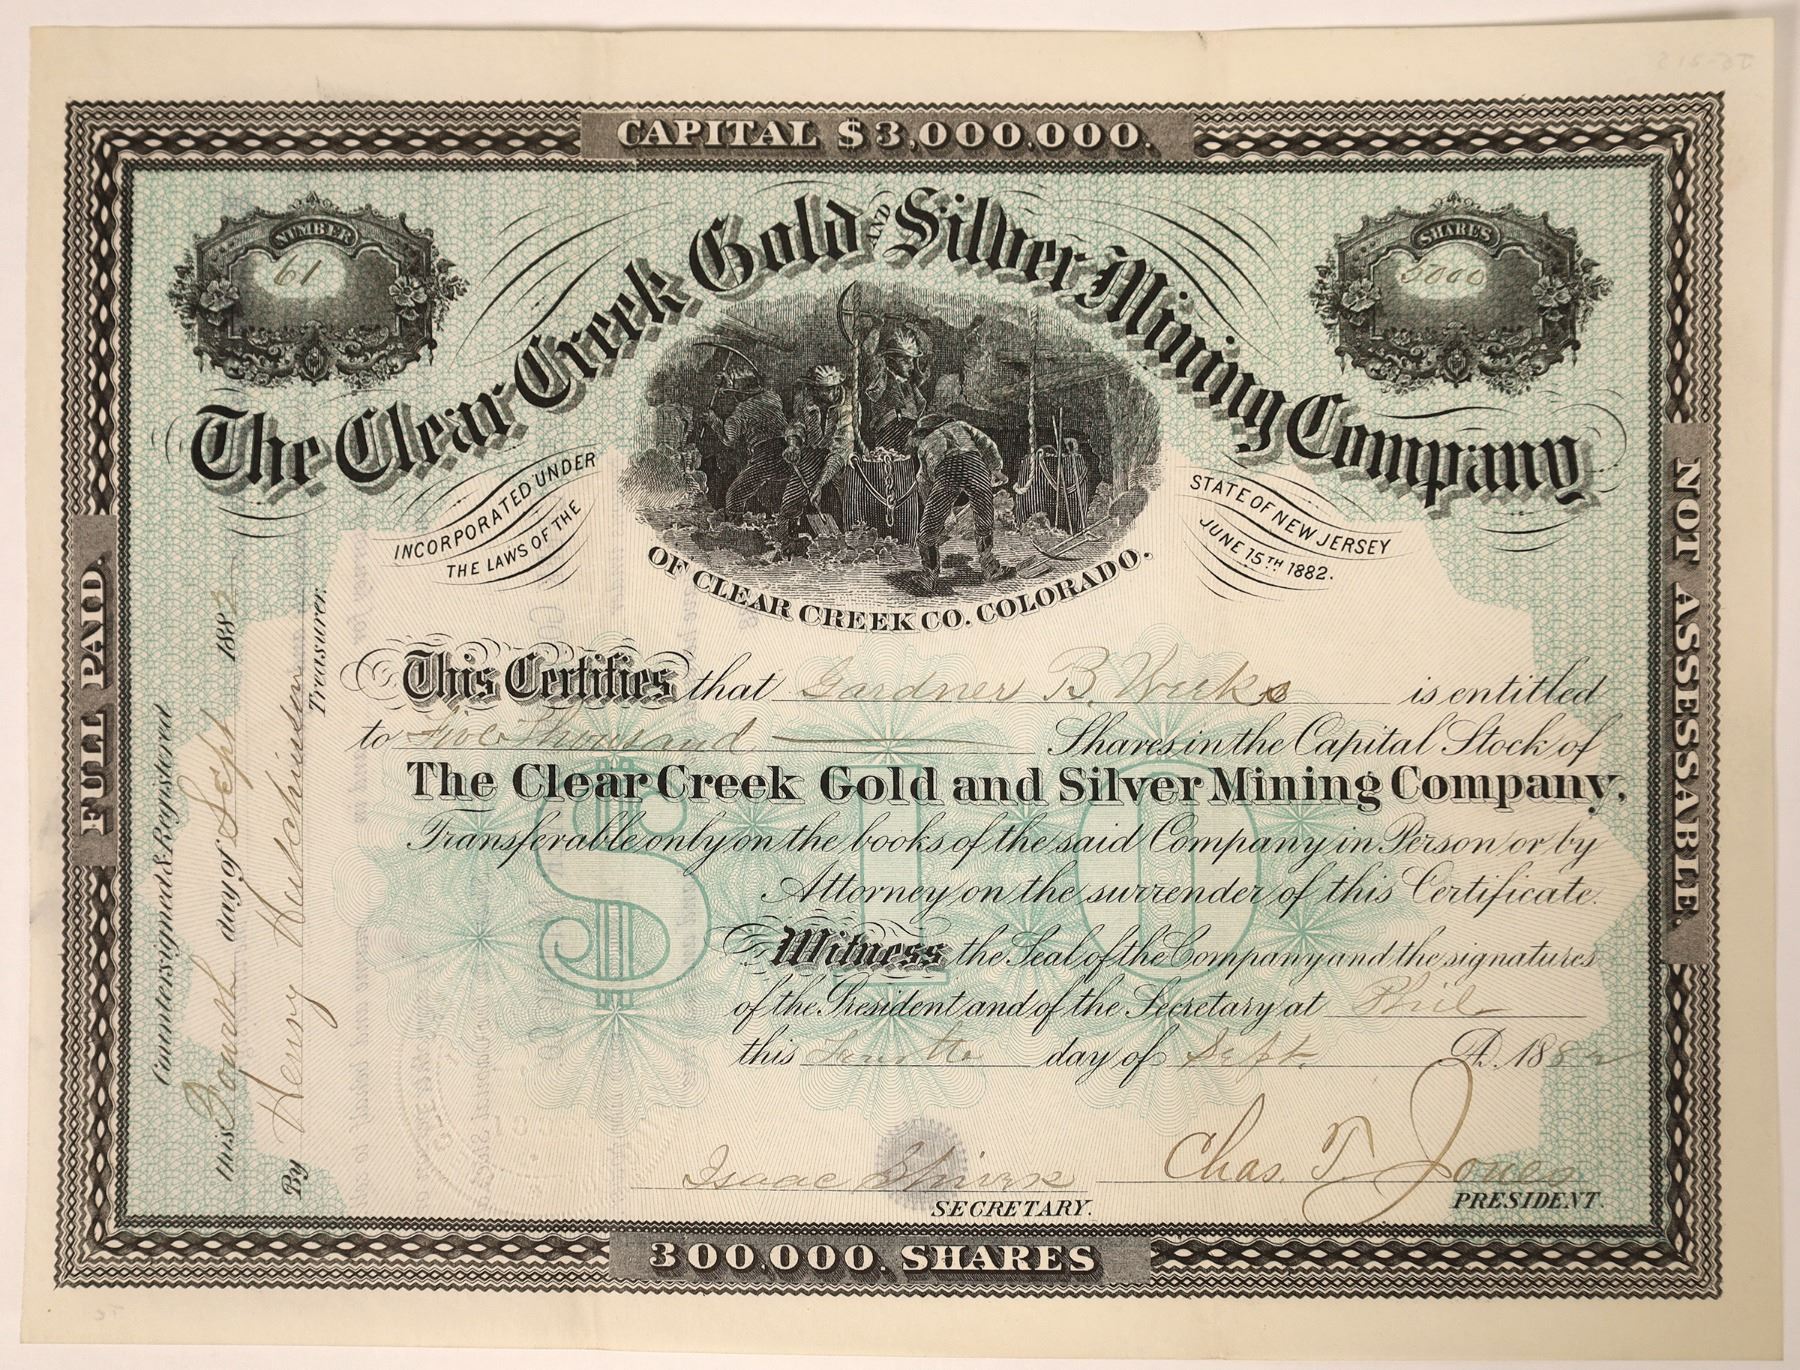 CAPITAL $3,000,000.
NUMBER
61
SHARES
5000
The Clear Creek Gold AND Silver Mining Company
INCORPORATED UNDER
THE LAWS OF THE
STATE OF NEW JERSEY
JUNE 15TH 1882.
OF CLEAR CREEK CO. COLORADO.
This Certifies that Gardner B. Weeks is entitled
to Five Thousand Shares in the Capital Stock of
The Clear Creek Gold and Silver Mining Company,
Transferable only on the books of the said Company in Person or by
Attorney on the surrender of this Certificate.
Witness the Seal of the Company and the signatures
of the President and of the Secretary at Phil
this Fourth day of Sept. A.D. 1882
Isaac
SECRETARY.
Chas. T. Jones
PRESIDENT.
300,000. SHARES
FULL PAID.
NOT ASSESSABLE.
Countersigned & Registered
this Fourth day of Sept 1882
By Henry Hutchinson
Treasurer.